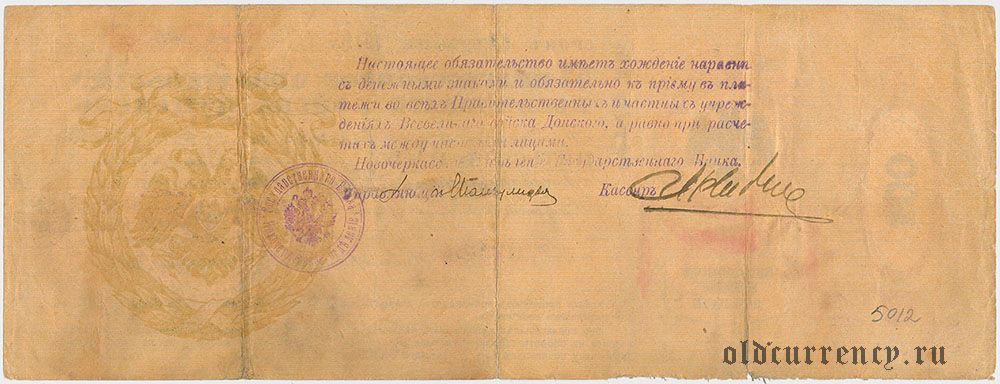 Настоящее обязательство имѣетъ хожденіе наравнѣ
съ денежными знаками и обязательно къ пріему въ пла-
тежи во всѣхъ Правительственныхъ и частныхъ учреж-
деніяхъ Всевеликаго Войска Донского, а равно при расче-
тахъ между частными лицами.
Новочеркасское Отдѣленіе Государственнаго Банка.
Управляющій Кассиръ
5012
oldcurrency.ru